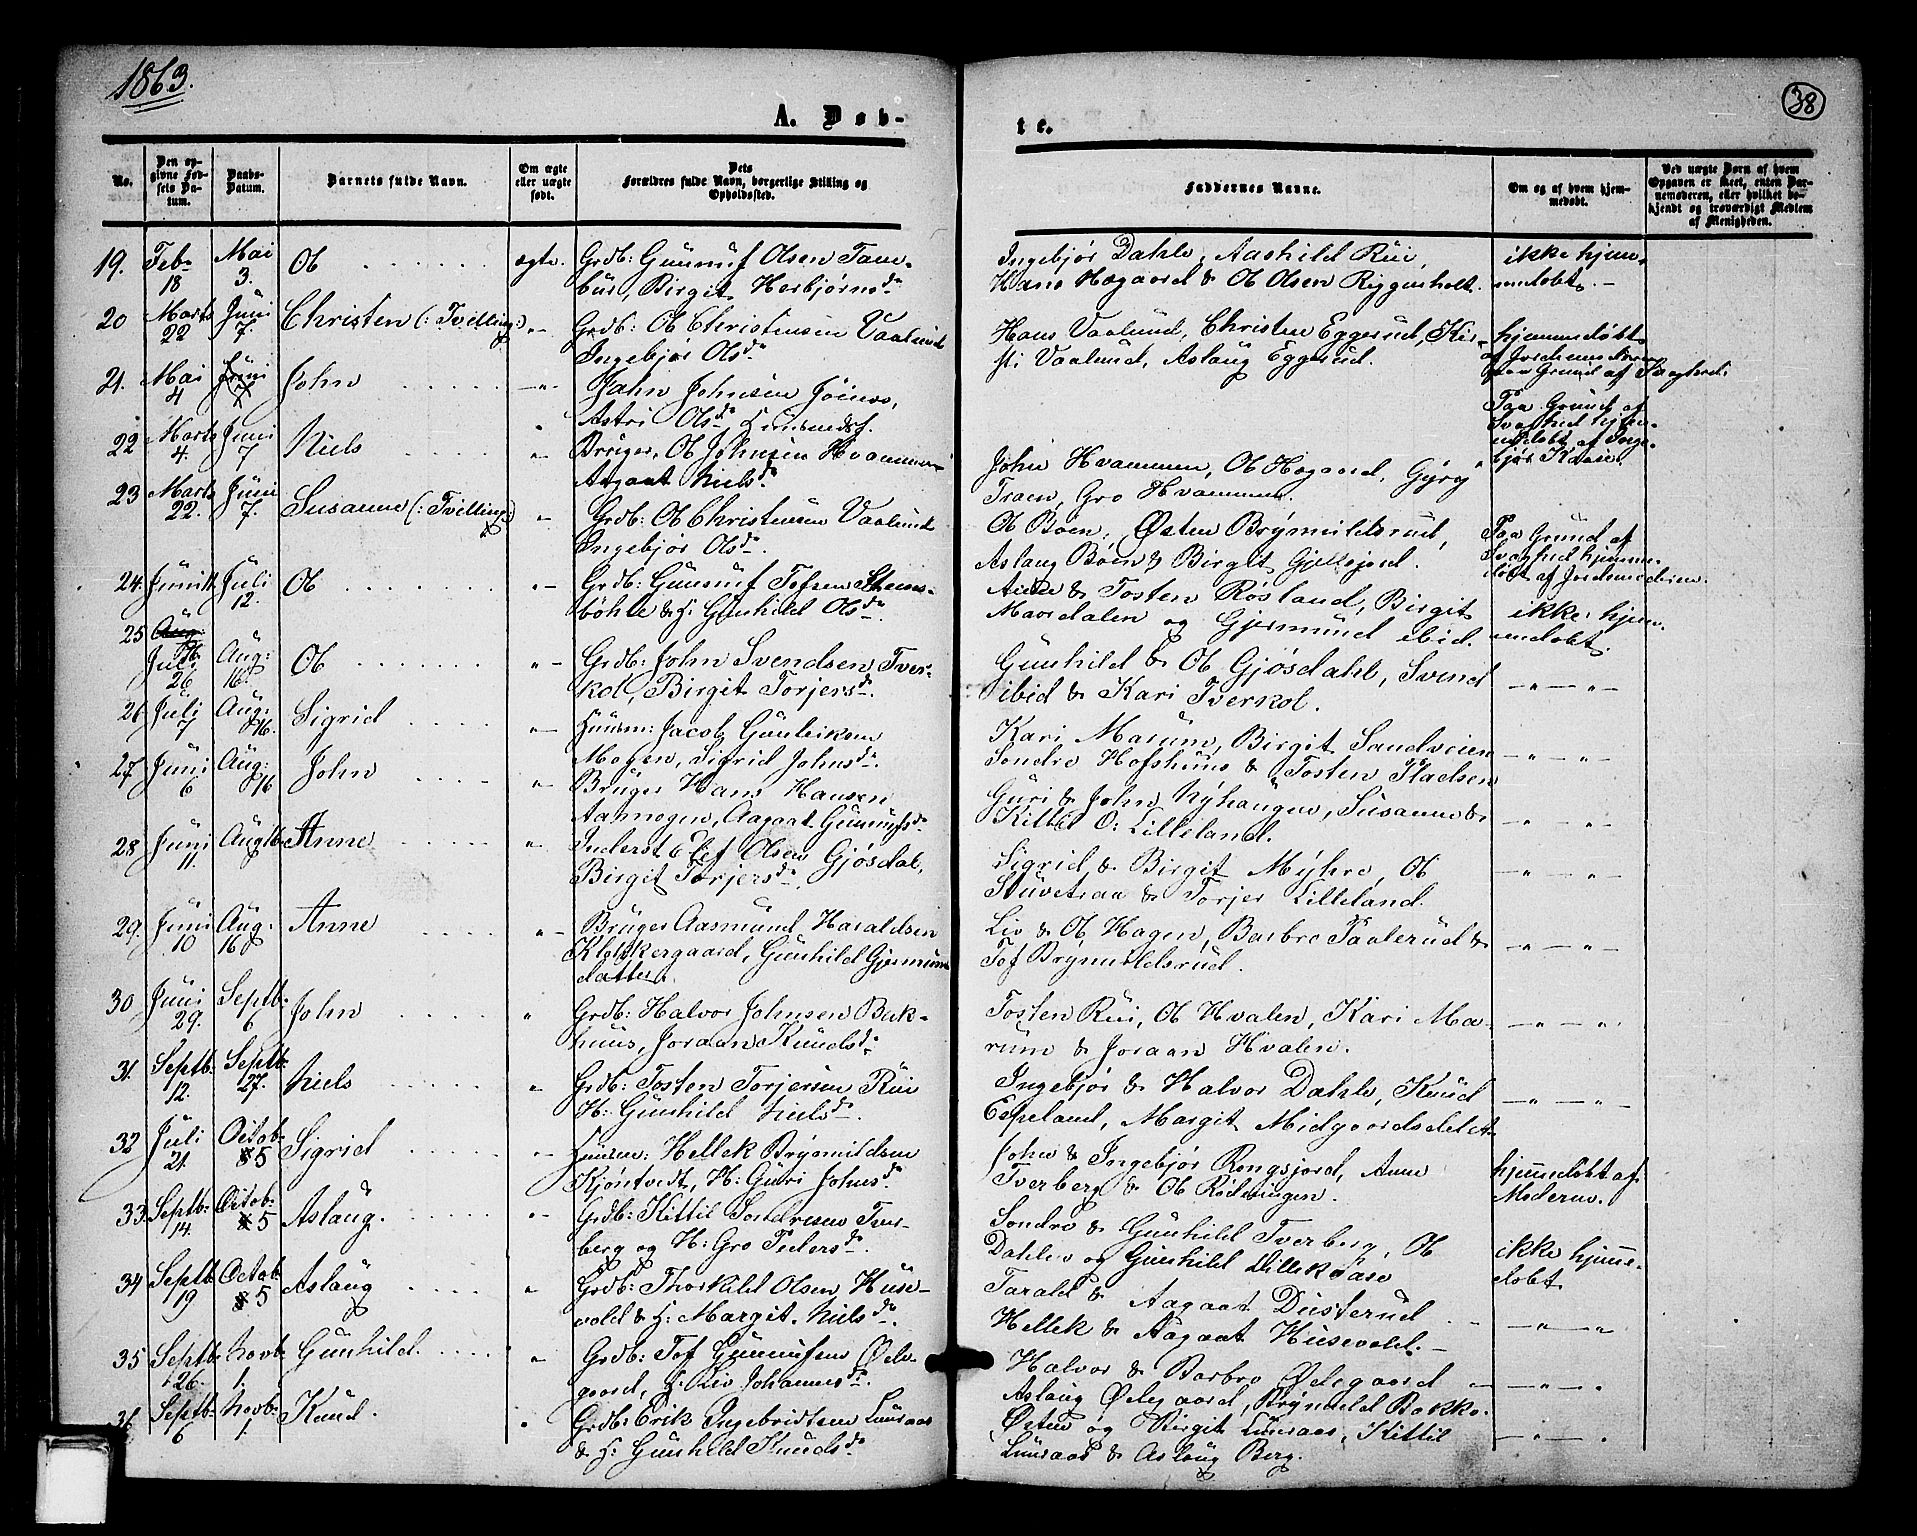 1863.
38
A. Døb-
te.
No.
Den op-
givne Fød-
sels Da-
tum.
Daabs-
Datum.
Barnets fulde Navn.
Om ægte
eller uægte
født.
Dets
Forældres fulde Navn, borgerlige Stilling og
Opholdssted.
Faddernes Navne.
Om og af hvem hjem-
medøbt.
Ved uægte Børn af hvem
Opgaven er skeet, enten Bar-
nemoderen, eller hvilket be-
kjendt og troværdigt Medlem
af Menigheden.
19. Feb. 18 Mai 3. Ole ægte. Grdb: Gunnuf Olsen Tam-
bur, Birgit Herbjørnsdr.
Ingebjør Dahle, Aashild Rui,
Hans Hægaard & Ole Olsen Riggenholt.
ikke hjem-
medøbt.
20 Marts 22 Juni 7. Christen (: Tvilling:) " Grdb: Ole Christensen Vaalund
Ingebjør Olsdr.
Hans Vaalund, Christen Eggerud, Kir-
sti Vaalund, Aslaug Eggerud.
hjemmedøbt
af Jordemoderen
paa Grund af Svaghed.
21. Mai 4 Juni John " John Johnsen
Astri Olsdr
22 Marts 4. Juni 7 Niels " Bruger, Ole Johnsen Hvammen
Aagaat Nielsdr.
John Hvammen, Ole Hægaard, Gyry
Traen, Gro Hvammen.
Paa Grund af
Svaghed hjem-
medøbt af Inge-
bjør Kaase.
23 Marts 22. Juni 7. Susanne (: Tvilling:) " Grdb: Ole Christensen Vaalund
Ingebjør Olsdr.
Ole Bøen, Østen Brynuldsrud,
Aslaug Bøen & Birgit Gjellesjord.
Paa Grund af
Svaghed hjemme-
døbt af Jordemoderen.
24. Juni Juli 12. Ole " Grdb: Gunnuf Tofsen Steens-
bøhle & H: Gunhild Olsdr.
Anne & Tosten Røsland, Birgit
Maardalen og Gjermund ibid.
ikke hjem-
medøbt.
25 Juli 26 Aug: 16. Ole " Grdb: John Svendsen Tver-
kol, Birgit Torjersdr.
Gunhild & Ole Gjøsdahl, Svend
ibid & Kari Tverkol.
26 Juli 7 Aug: 16. Sigrid " Huusm: Jacob Gunleiksen
Mogen, Sigrid Johnsdr.
Kari Marum, Birgit Sandveien
Sondre Hofshuus & Tosten Stadsen
27 Juni 6 Aug: 16 John " Bruger Hans Hansen
Aamogen, Aagaat Gunnufsdr
Guri & John Nyhaugen, Susanne &
Kittel O: Lilleland.
28 Juni 11. Aug 16 Anne " Inderst Olef Olsen Gjøsdal,
Birgit Torjersdr.
Sigrid & Birgit Myhre, Ole
Stuvetraa & Torjer Lilleland.
29. Juni 10 Aug. 16 Anne " Bruger Aasmund Haraldsen
Klokkergaard, Gunhild Gjermund-
datter.
Liv & Ole Hagen, Barbro Paalerud &
Tof Brynuldsrud.
30 Juni 29. Septb. 6 John " Grdb: Halvor Johnsen Bak-
huus, Joraan Knudsdr
Tosten Rui, Ole Hvalen, Kari Ma-
rum & Joraan Hvalen.
31. Septb. 12. Septb. 27. Niels " Grdb: Tosten Torjersen Rui
H: Gunhild Nielsdr.
Ingebjør & Halvor Dahle, Knud
Espeland, Margit Midgaardsdelet.
32 Juli 21. Octob. 5 Sigrid " Huusm: Hellek Brynildsen
Kjøntvedt, H: Guri Johnsdr.
John & Ingebjør Rongsjord, Anne
Tverberg & Ole Rødningen.
hjemmedøbt af
Moderen.
33. Septb. 14. Octob. 5 Aslaug. " Grdb: Kittil Sondresen Tver-
berg og H: Gro Pedersdr.
Sondre & Gunhild Tverberg, Ole
Dahlen og Gunhild Lillekaase
ikke hjemme-
døbt
34 Septb. 19 Octob. 5 Aslaug " Grdb: Thorkild Olsen Huse-
vold & H: Margit Nielsdr.
Tarald & Aagaat Dusterud
Hellek & Aagaat Husevold.
35 Septb. 26. Novb. 1. Gunhild. " Grdb: Tof Gunnufsen Øde-
gaard, H: Liv Johannesdr.
Halvor & Barbro Ødegaard
Aslaug Ødegaard, Brynild Bakke.
36 Septb. 6 Novb. 1. Knud. " Grdb: Erik Ingebrigtsen Luuraas
& H: Gunhild Knudsdr.
Østen og Birgit Luuraas, Kittil
Luuraas & Aslaug Berg.